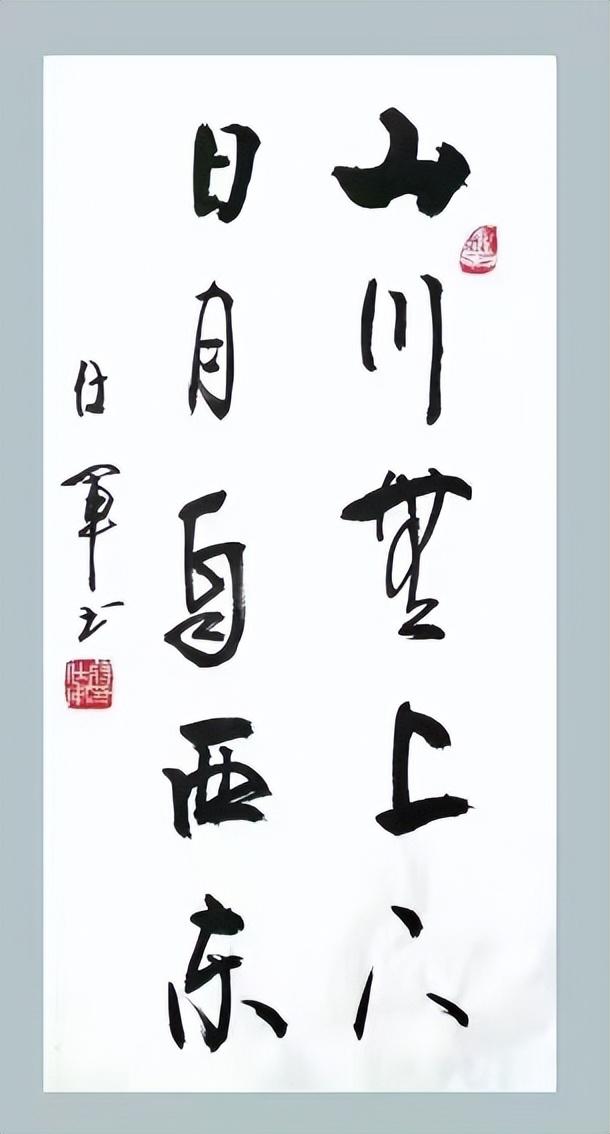 山川無上下
日月自西东
仕軍书